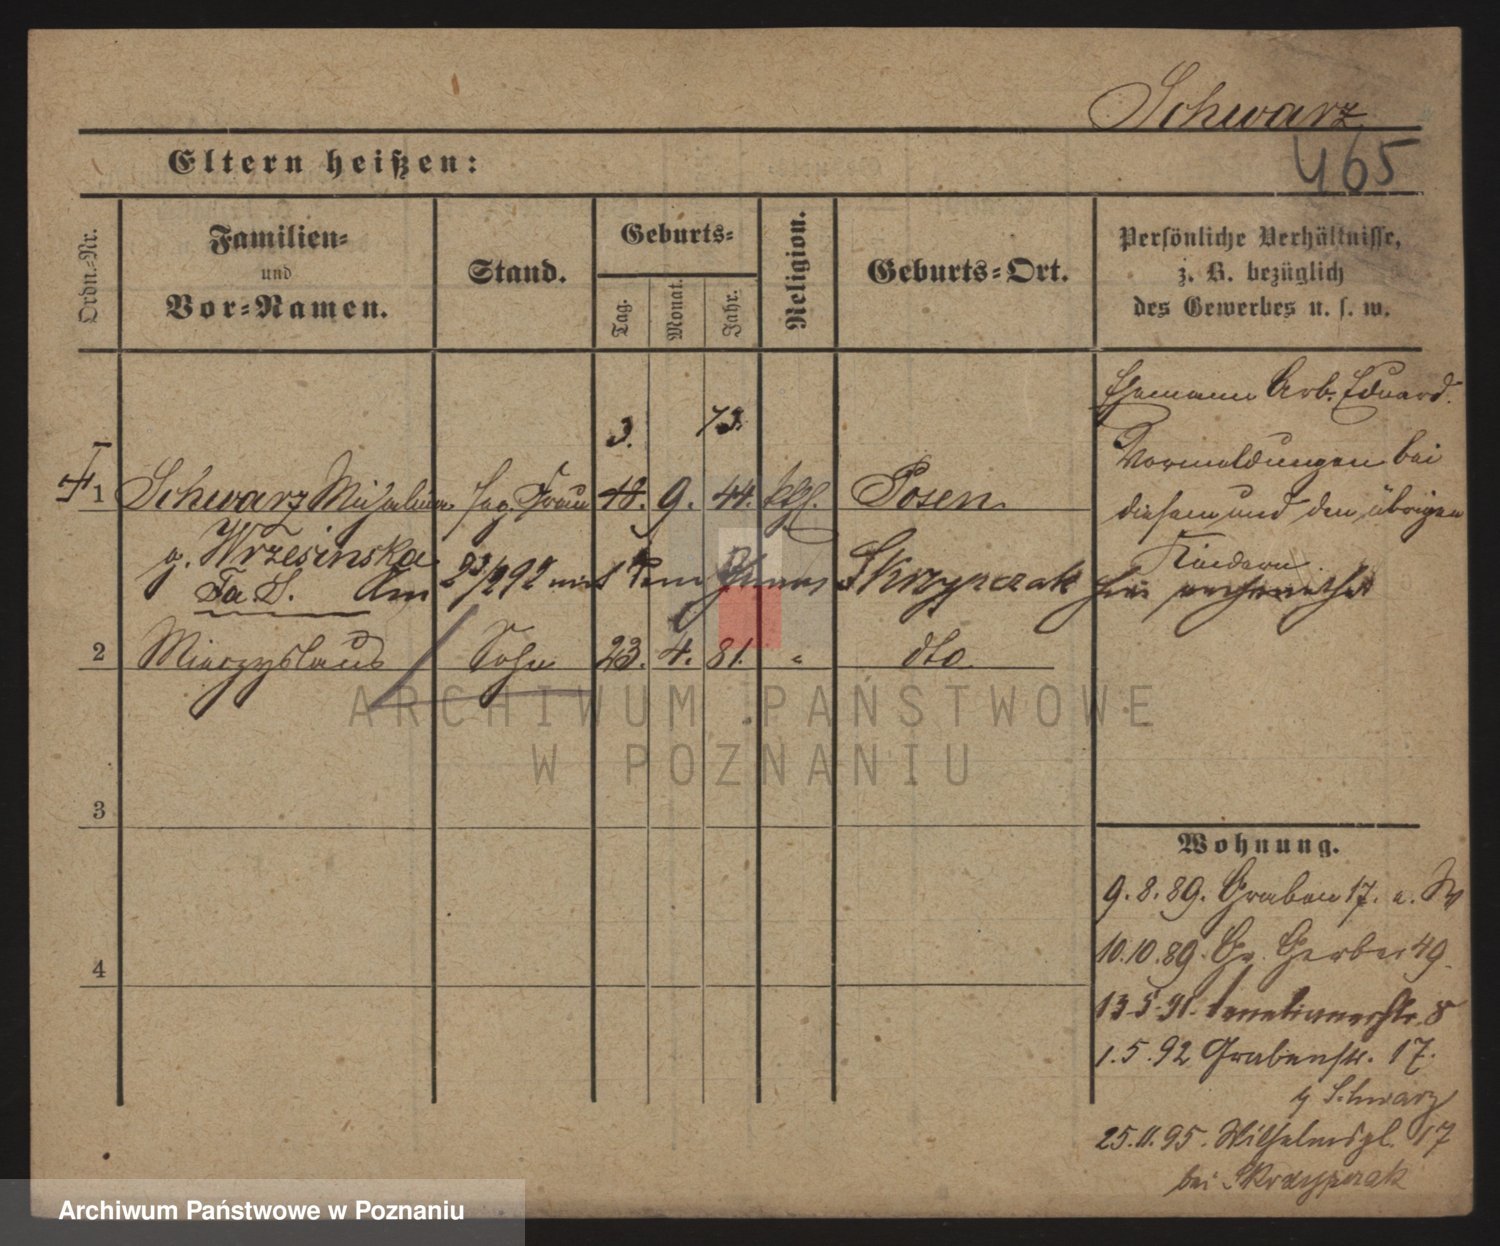 Schwarz
465
Eltern heißen:
Ordn.-Nr.
Familien-
und
Vor-Namen.
Stand.
Geburts-
Tag.
Monat.
Jahr.
Religion.
Geburts-Ort.
Persönliche Verhältnisse,
z. B. bezüglich
des Gewerbes u. s. w.
Ehemann Arb. Eduard.
Vormeldungen bei
diesem und den übrigen
Kindern.
3. 73.
1 Schwarz Michalina Frau 18. 9. 44. kth. Posen
g. Wrzesinska
Fa. S. Am 23/2 92 mit dem Skrzypczak hier verheirathet
2 Mieczyslaus Sohn 23. 4. 81. " dto
3
4
Wohnung.
9.8.89. Graben 17. a. W
10.10.89. Gr. Gerber 49.
13.5.91. Venetianerstr. 8
1.5.92 Grabenstr. 17.
b Schwarz
25.11.95. Wilhelmspl. 17
bei Skrzypczak
ARCHIWUM PAŃSTWOWE
W POZNANIU
Archiwum Państwowe w Poznaniu